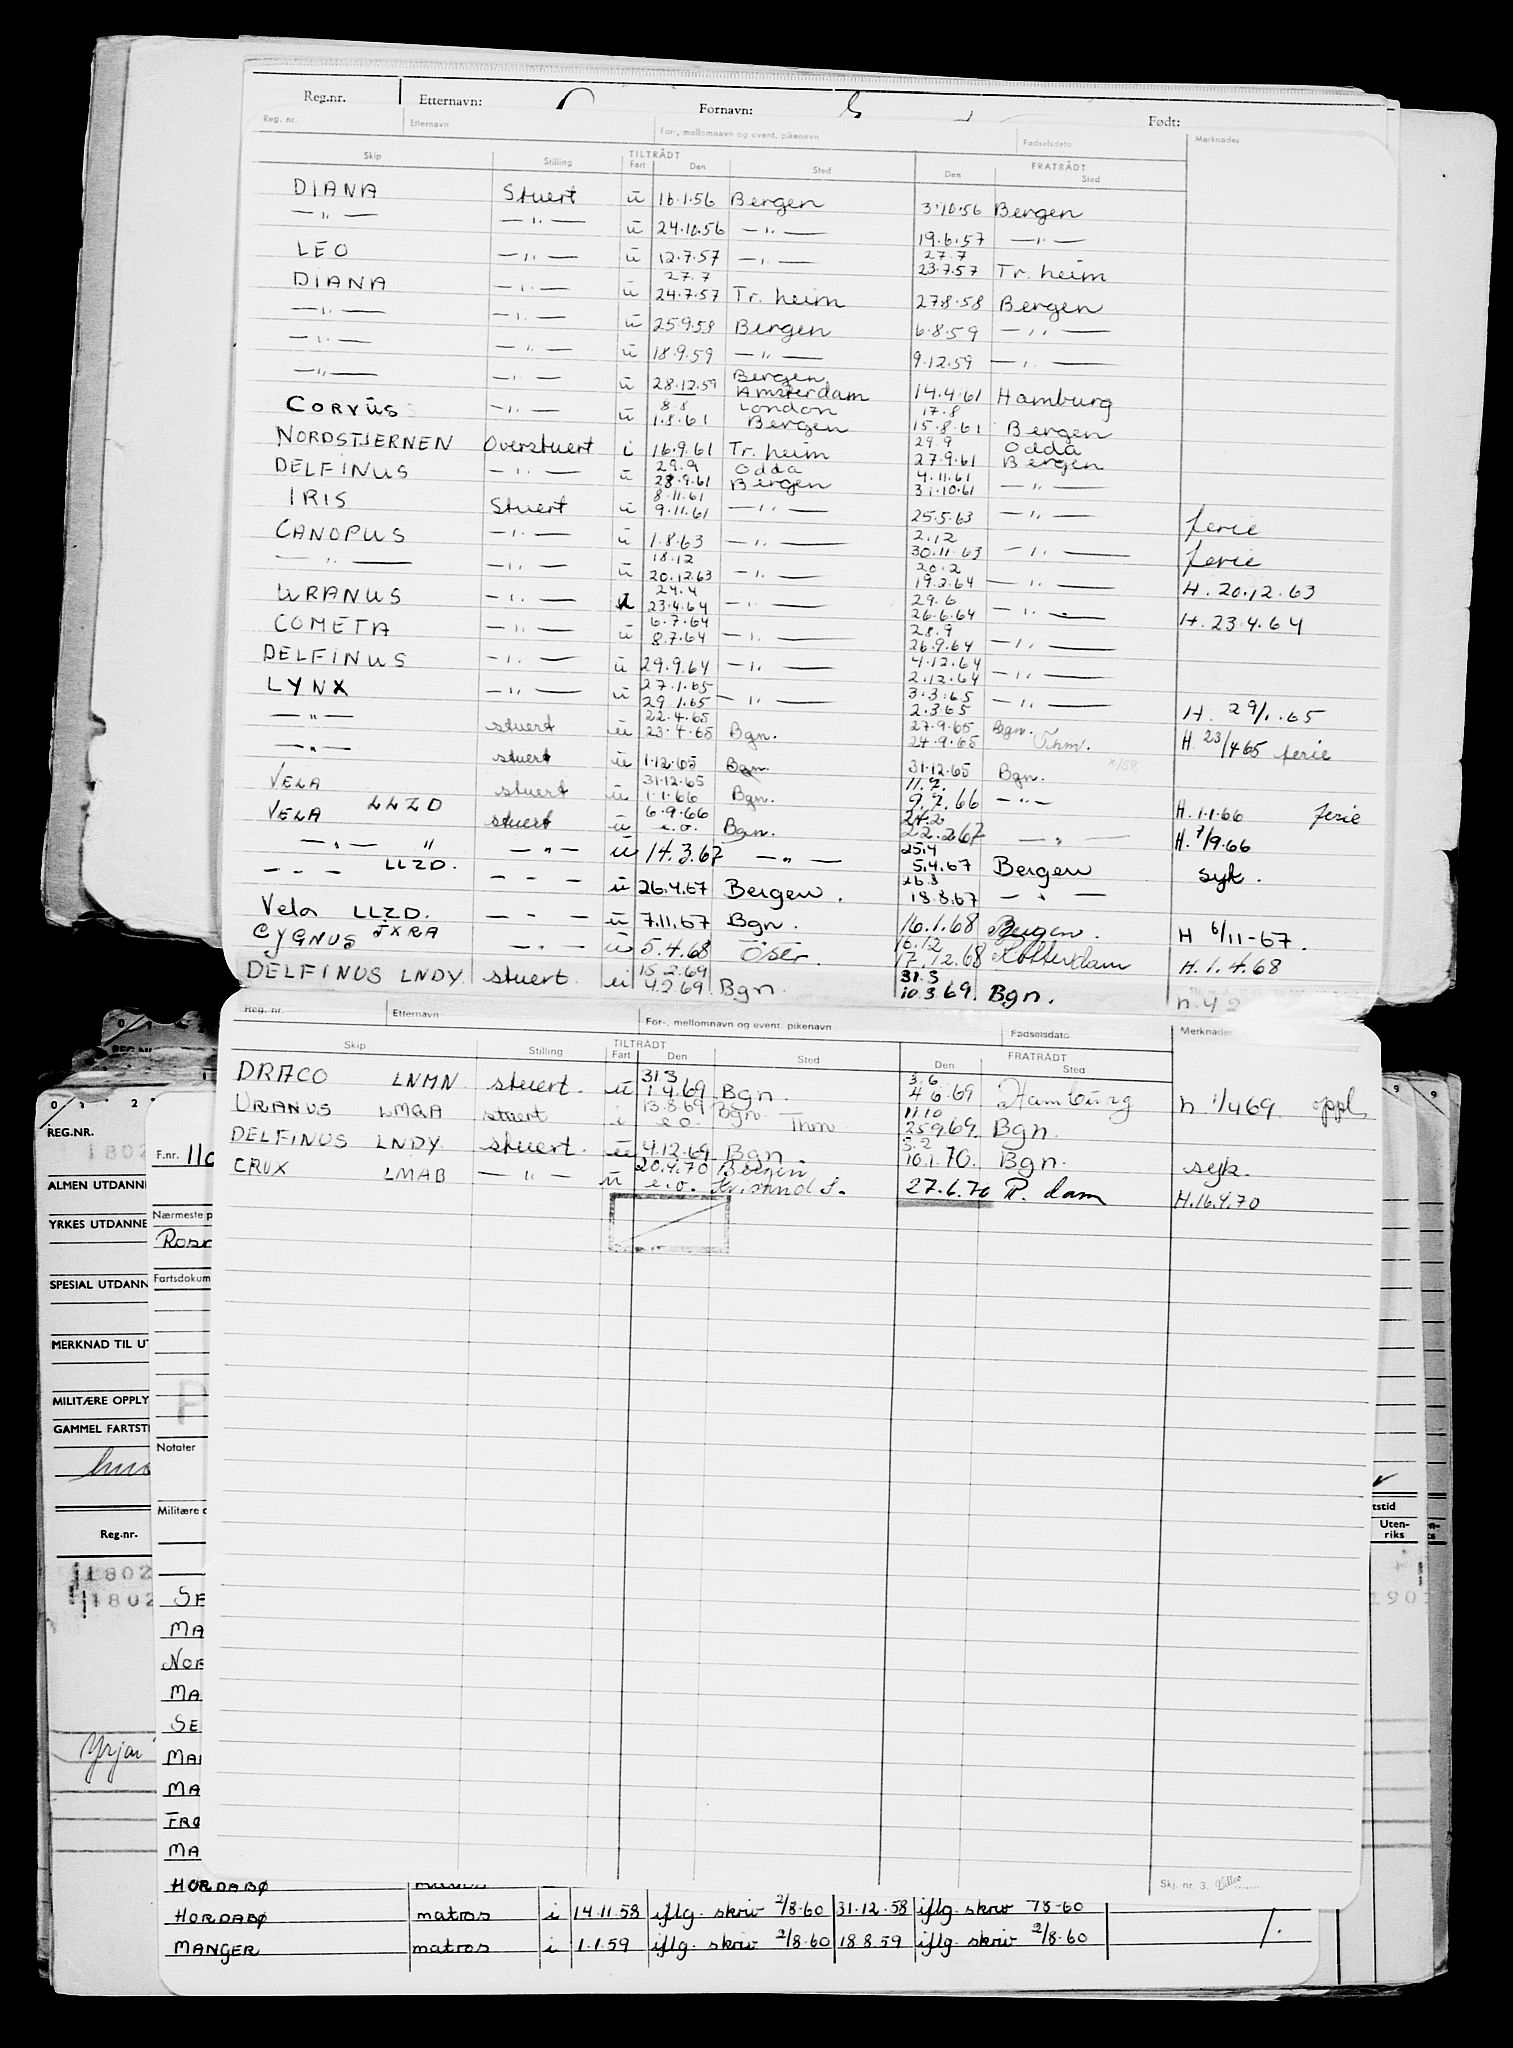 Reg.nr. Etternavn: Fornavn: Født:
Reg. nr. Etternavn For-, mellomnavn og event. pikenavn Fødselsdato Merknader
Skip Stilling TILTRÅDT Fart Den Sted FRATRÅDT Den Sted
DIANA Stuert u 16.1.56 Bergen 3.10.56 Bergen
—"— —"— u 24.10.56 —"— 19.6.57 —"—
LEO —"— u 12.7.57 —"— 27.7 23.7.57 Tr. heim
DIANA —"— u 27.7 24.7.57 Tr. heim 27.8.58 Bergen
—"— —"— u 25.9.58 Bergen 6.8.59 —"—
—"— —"— u 18.9.59 —"— 9.12.59 —"—
—"— —"— u 28.12.59 Bergen Amsterdam 14.4.61 Hamburg
CORVUS —"— u 8.8 1.8.61 London Bergen 17.8 15.8.61 Bergen
NORDSTJERNEN Overstuert i 16.9.61 Tr. heim 29.9 27.9.61 Odda Bergen
DELFINUS —"— u 29.9 28.9.61 Odda Bergen 4.11.61 31.10.61 —"—
IRIS Stuert u 8.11.61 9.11.61 —"— 25.5.63 —"— ferie
CANOPUS —"— u 1.8.63 —"— 2.12 30.11.63 —"— ferie
—"— —"— u 18.12 20.12.63 —"— 20.2 19.2.64 —"— H. 20.12.63
URANUS —"— u 24.4 23.4.64 —"— 29.6 26.6.64 —"— H. 23.4.64
COMETA —"— u 6.7.64 8.7.64 —"— 28.9 26.9.64 —"—
DELFINUS —"— u 29.9.64 —"— 4.12.64 2.12.64 —"—
LYNX —"— u 27.1.65 29.1.65 —"— 3.3.65 2.3.65 —"— H. 29/1.65
—"— stuert u 22.4.65 23.4.65 Bgn. 27.9.65 24.9.65 Bgn. Trhm. H. 23/4 65 ferie
—"— stuert u 1.12.65 Bgn. 31.12.65 Bgn.
VELA stuert u 31.12.65 1.1.66 Bgn. 11.2. 9.2.66 —"— H. 1.1.66 ferie
VELA LLZD stuert u 6.9.66 e.o. Bgn. 24.2 22.2.67 —"— H. 7/9.66
—"— " —"— u 14.3.67 —"— 25.4 5.4.67 Bergen syk.
—"— LLZD. —"— u 26.4.67 Bergen. 18.8.67 —"—
Vela LLZD. —"— u 7.11.67 Bgn. 16.1.68 Bergen. H 6/11-67.
CYGNUS JXRA —"— u 5.4.68 16.12 17.12.68 Rotterdam H. 1.4.68
DELFINUS LNDY. stuert. u 15.2.69 4.2 69. Bgn. 31.3 10.3 69. Bgn. h. 4 2
Reg. nr. Etternavn For-, mellomnavn og event. pikenavn Fødselsdato Merknader
Skip Stilling TILTRÅDT Fart Den Sted FRATRÅDT Den Sted
DRACO LNMN. stuert. u 31.3 1.4.69 Bgn. 3.6 4.6.69 Hamburg h 1/4 69. oppl
URANUS LMGA stuert i 13.8.69 e.o. Bgn. Thm 11.10 25.9 69. Bgn.
DELFINUS LNDY. stuert. u 4.12.69. Bgn. 5.2 10.1.70. Bgn. syk.
CRUX LMAB —"— u 20.4.70 e.o. 27.6.70 R. dam H. 16.4.70
0 1 2 9 9
REG.NR.
1802
F.nr. 110
ALMEN UTDANN
YRKES UTDANNE Nærmeste p
Fartsdokum
SPESIAL UTDANN
MERKNAD TIL UT
MILITÆRE OPPLY
GAMMEL FARTST
Notater
Militære o
Reg.nr. tstid
Uten-riks
1802
1802
SE
MA
NOR
MA
SE
Yrjar
MAN
MA
FRO
MA
Skj. nr. 3.
HORDABØ
HORDABØ matros i 14.11.58 iflg. skriv 2/8-60 31.12.58 iflg. skriv 78-60
MANGER matros i 1.1.59 iflg. skriv 2/8-60 18 8.59 iflg. skriv 2/8-60